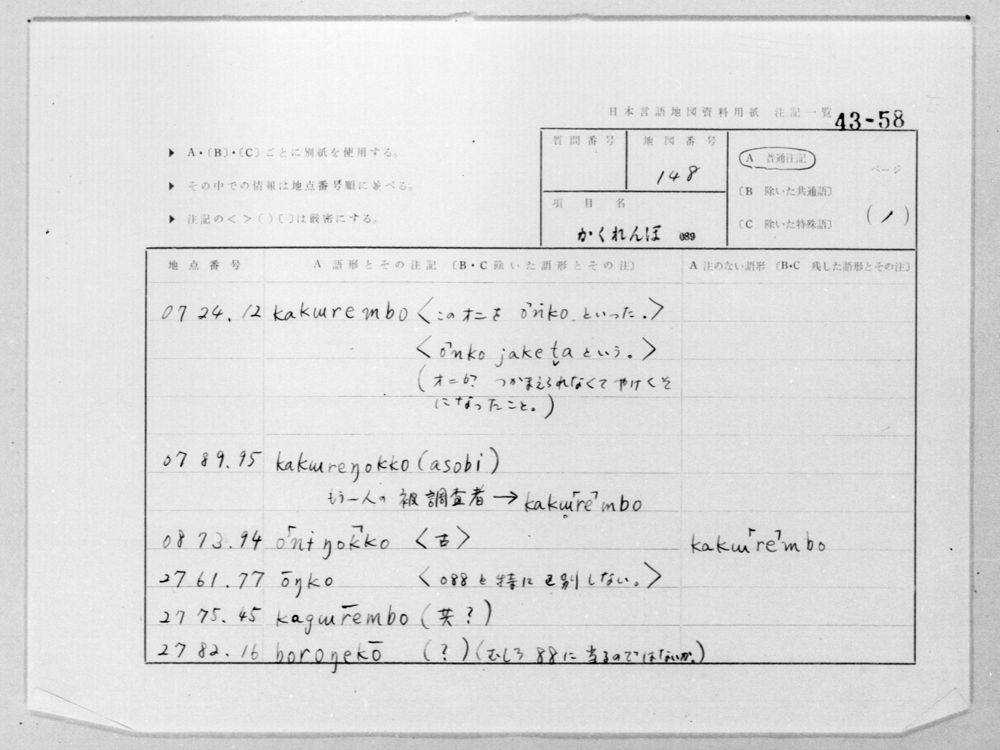 日本言語地図資料用紙 注記一覧 43-58
▶ A・〔B〕・〔C〕ごとに別紙を使用する。
▶ その中での情報は地点番号順に並べる。
▶ 注記の< >( )〔 〕は厳密にする。
質問番号 地図番号
148
項目名
かくれんぼ 089
A 普通注記
〔B 除いた共通語〕
〔C 除いた特殊語〕
ページ
(1)
地点番号 A 語形とその注記 〔B・C 除いた語形とその注〕 A 注のない語形 〔B・C 残した語形とその注〕
0724.12 kakɯrembo 〈このオニを o̅nko といった。〉
〈o̅nko jaketa という。〉
(オニが つかまえられなくて やけくそ
になったこと。)
0789.95 kakɯreŋokko (asobi)
もう一人の被調査者 → kakɯ̥「re」mbo
0873.94 o「ni ŋo」kko 〈古〉 kakɯ「re」mbo
2761.77 ōŋko 〈088と特に区別しない。〉
2775.45 kagɯr̅embo (共?)
2782.16 boroŋekō (?) (むしろ88に当るのではないか。)